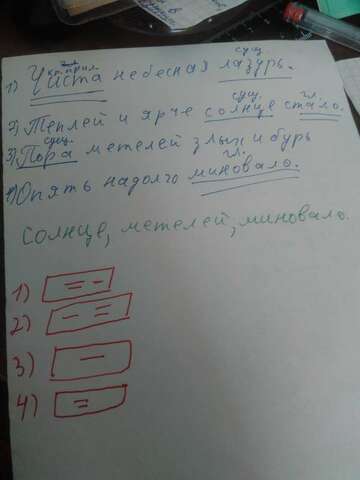 кр. прил. сущ.
1) Чиста небесная лазурь.
сущ. гл.
2) Теплей и ярче солнце стало.
сущ.
3) Пора метелей злых и бурь
гл.
4) Опять надолго миновало.
Солнце, метелей, миновало.
1) = -
2) - =
3) -
4) =